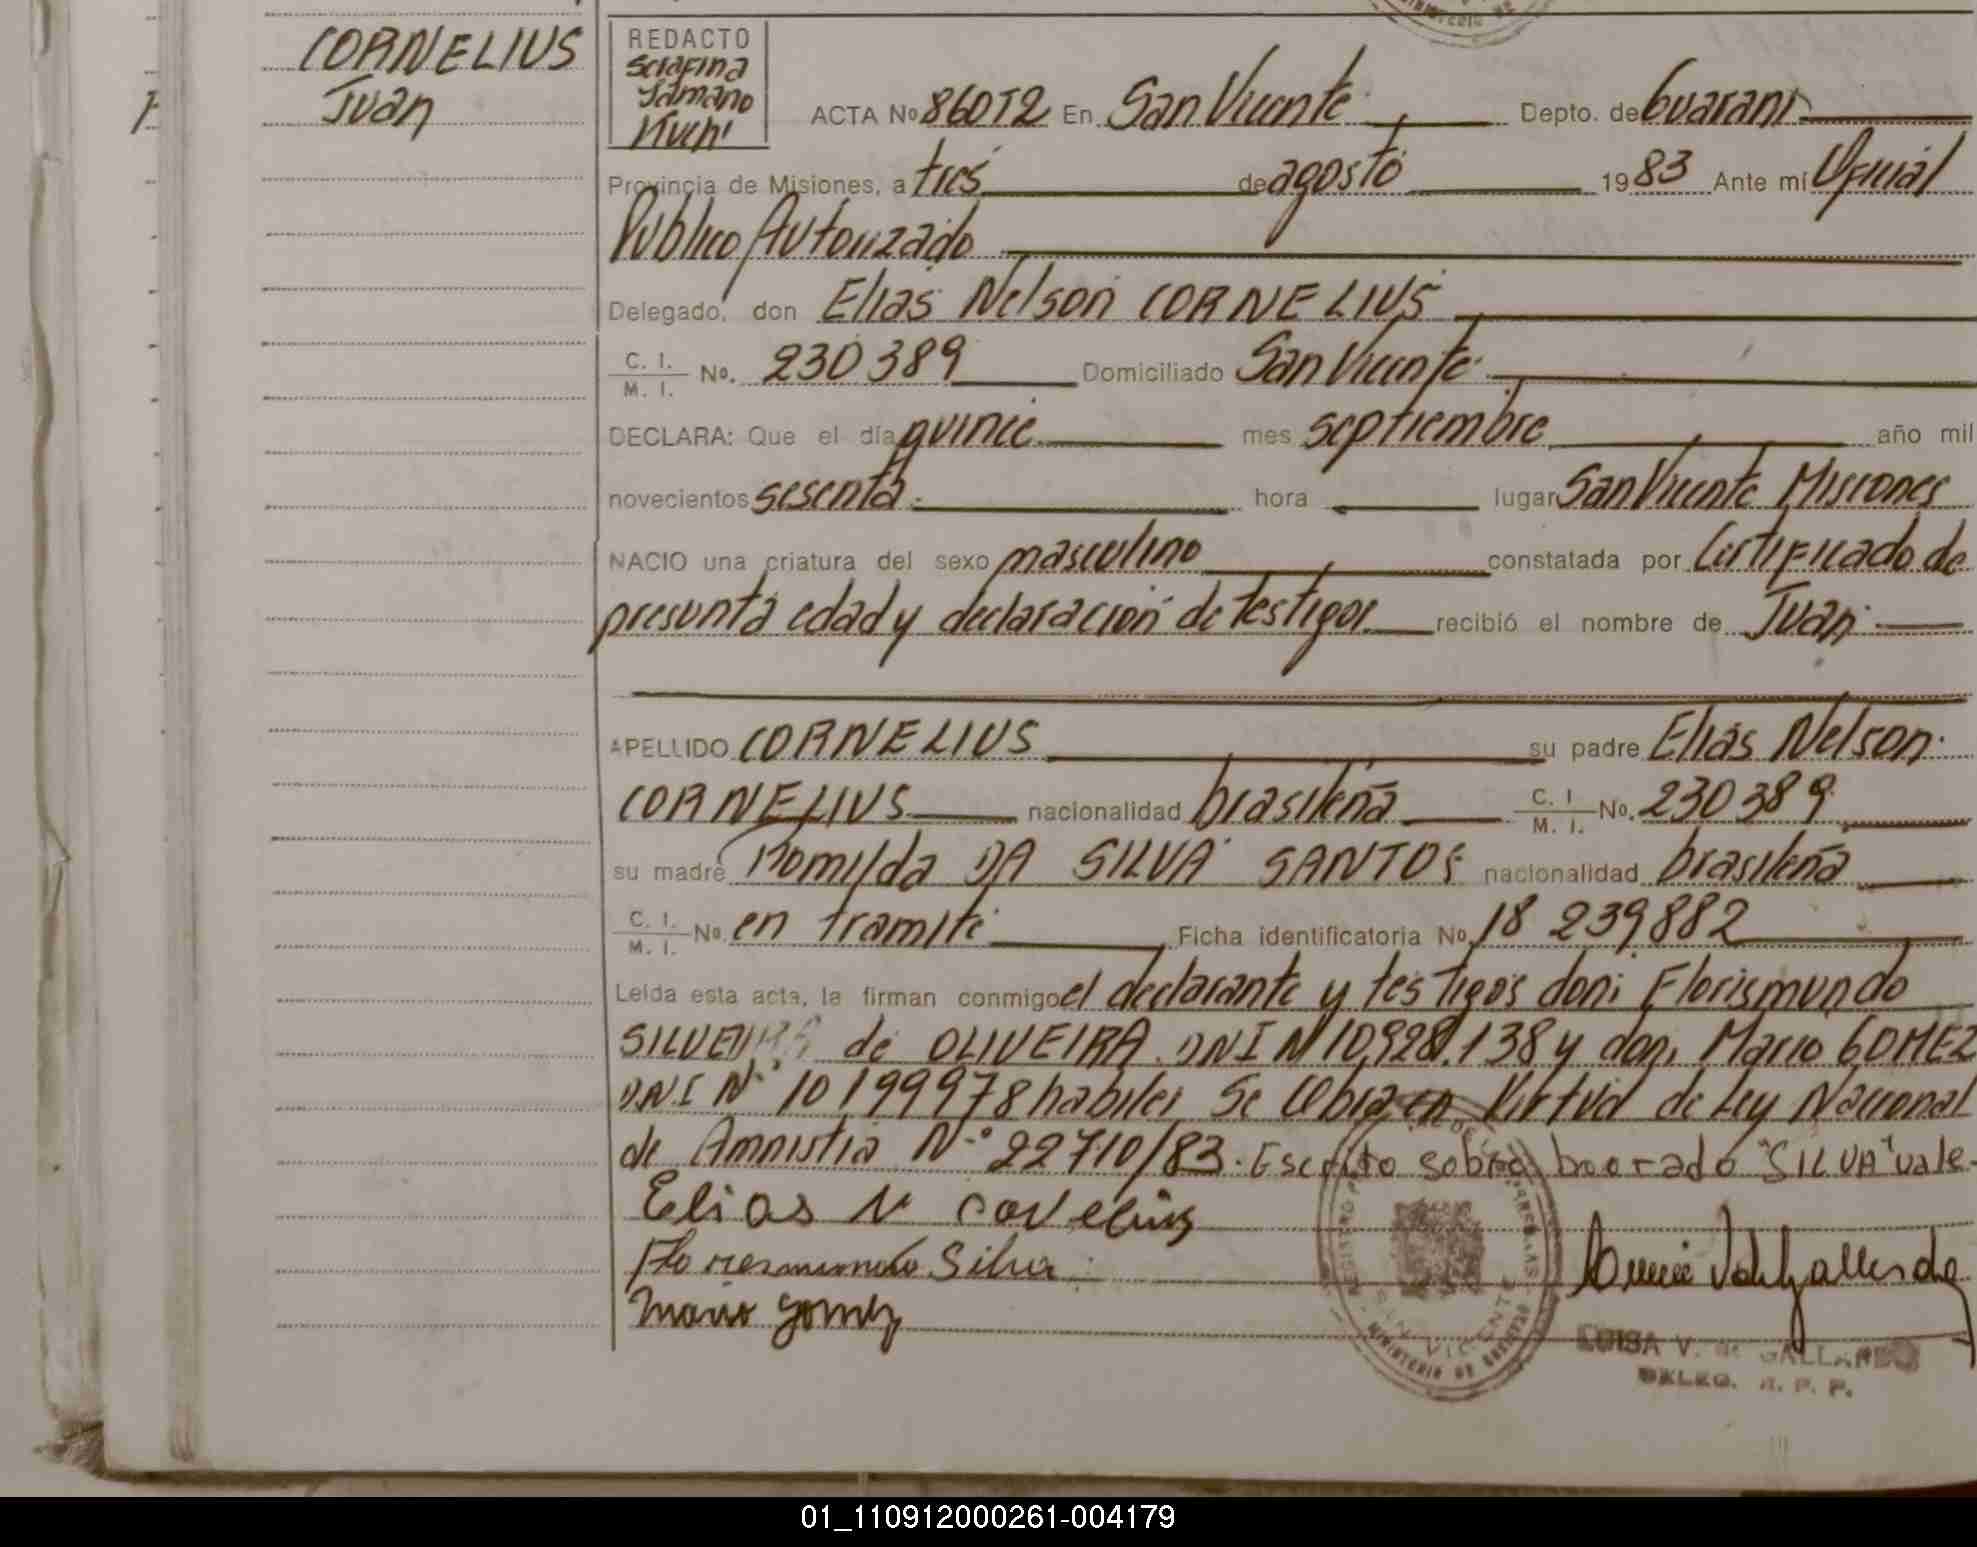 CORNELIUS
Juan
REDACTO
Serafina
Tamano
Viveni
ACTA No 86 0T2 En San Vicente Depto. de Guarani
Provincia de Misiones, a tres de agosto 1983 Ante mí Oficial
Publico Autorizado
Delegado, don Elias Nelson CORNELIUS
C. I. M. I. No. 230389 Domiciliado San Vicente
DECLARA: Que el día quince mes septiembre año mil
novecientos sesenta hora lugar San Vicente Misiones
NACIO una criatura del sexo masculino constatada por Certificado de
presunta edad y declaración de testigos recibió el nombre de Juan
APELLIDO CORNELIUS su padre Elias Nelson
CORNELIUS nacionalidad brasileña C. I. M. I. No. 230389
su madre Romilda DA SILVA SANTOS nacionalidad brasileña
C. I. M. I. No. en tramite Ficha identificatoria No. 18 239882
Leída esta acta, la firman conmigo el declarante y testigos don: Florismundo
de OLIVEIRA DNI N 10.928.138 y don: Mario GOMEZ
D.N.I Nº 10199978 habiles Se labra en Virtud de Ley Nacional
de Amnistia Nº 22710/83. Escrito sobre borrado "SILVA" vale-
Elias N Cornelius
Floresmundo Silva
Mario Gomez
SAN VICENTE
MINISTERIO DE GOBIERNO
LUISA V. de GALLARDO
DELEG. R. P. P.
01_110912000261-004179